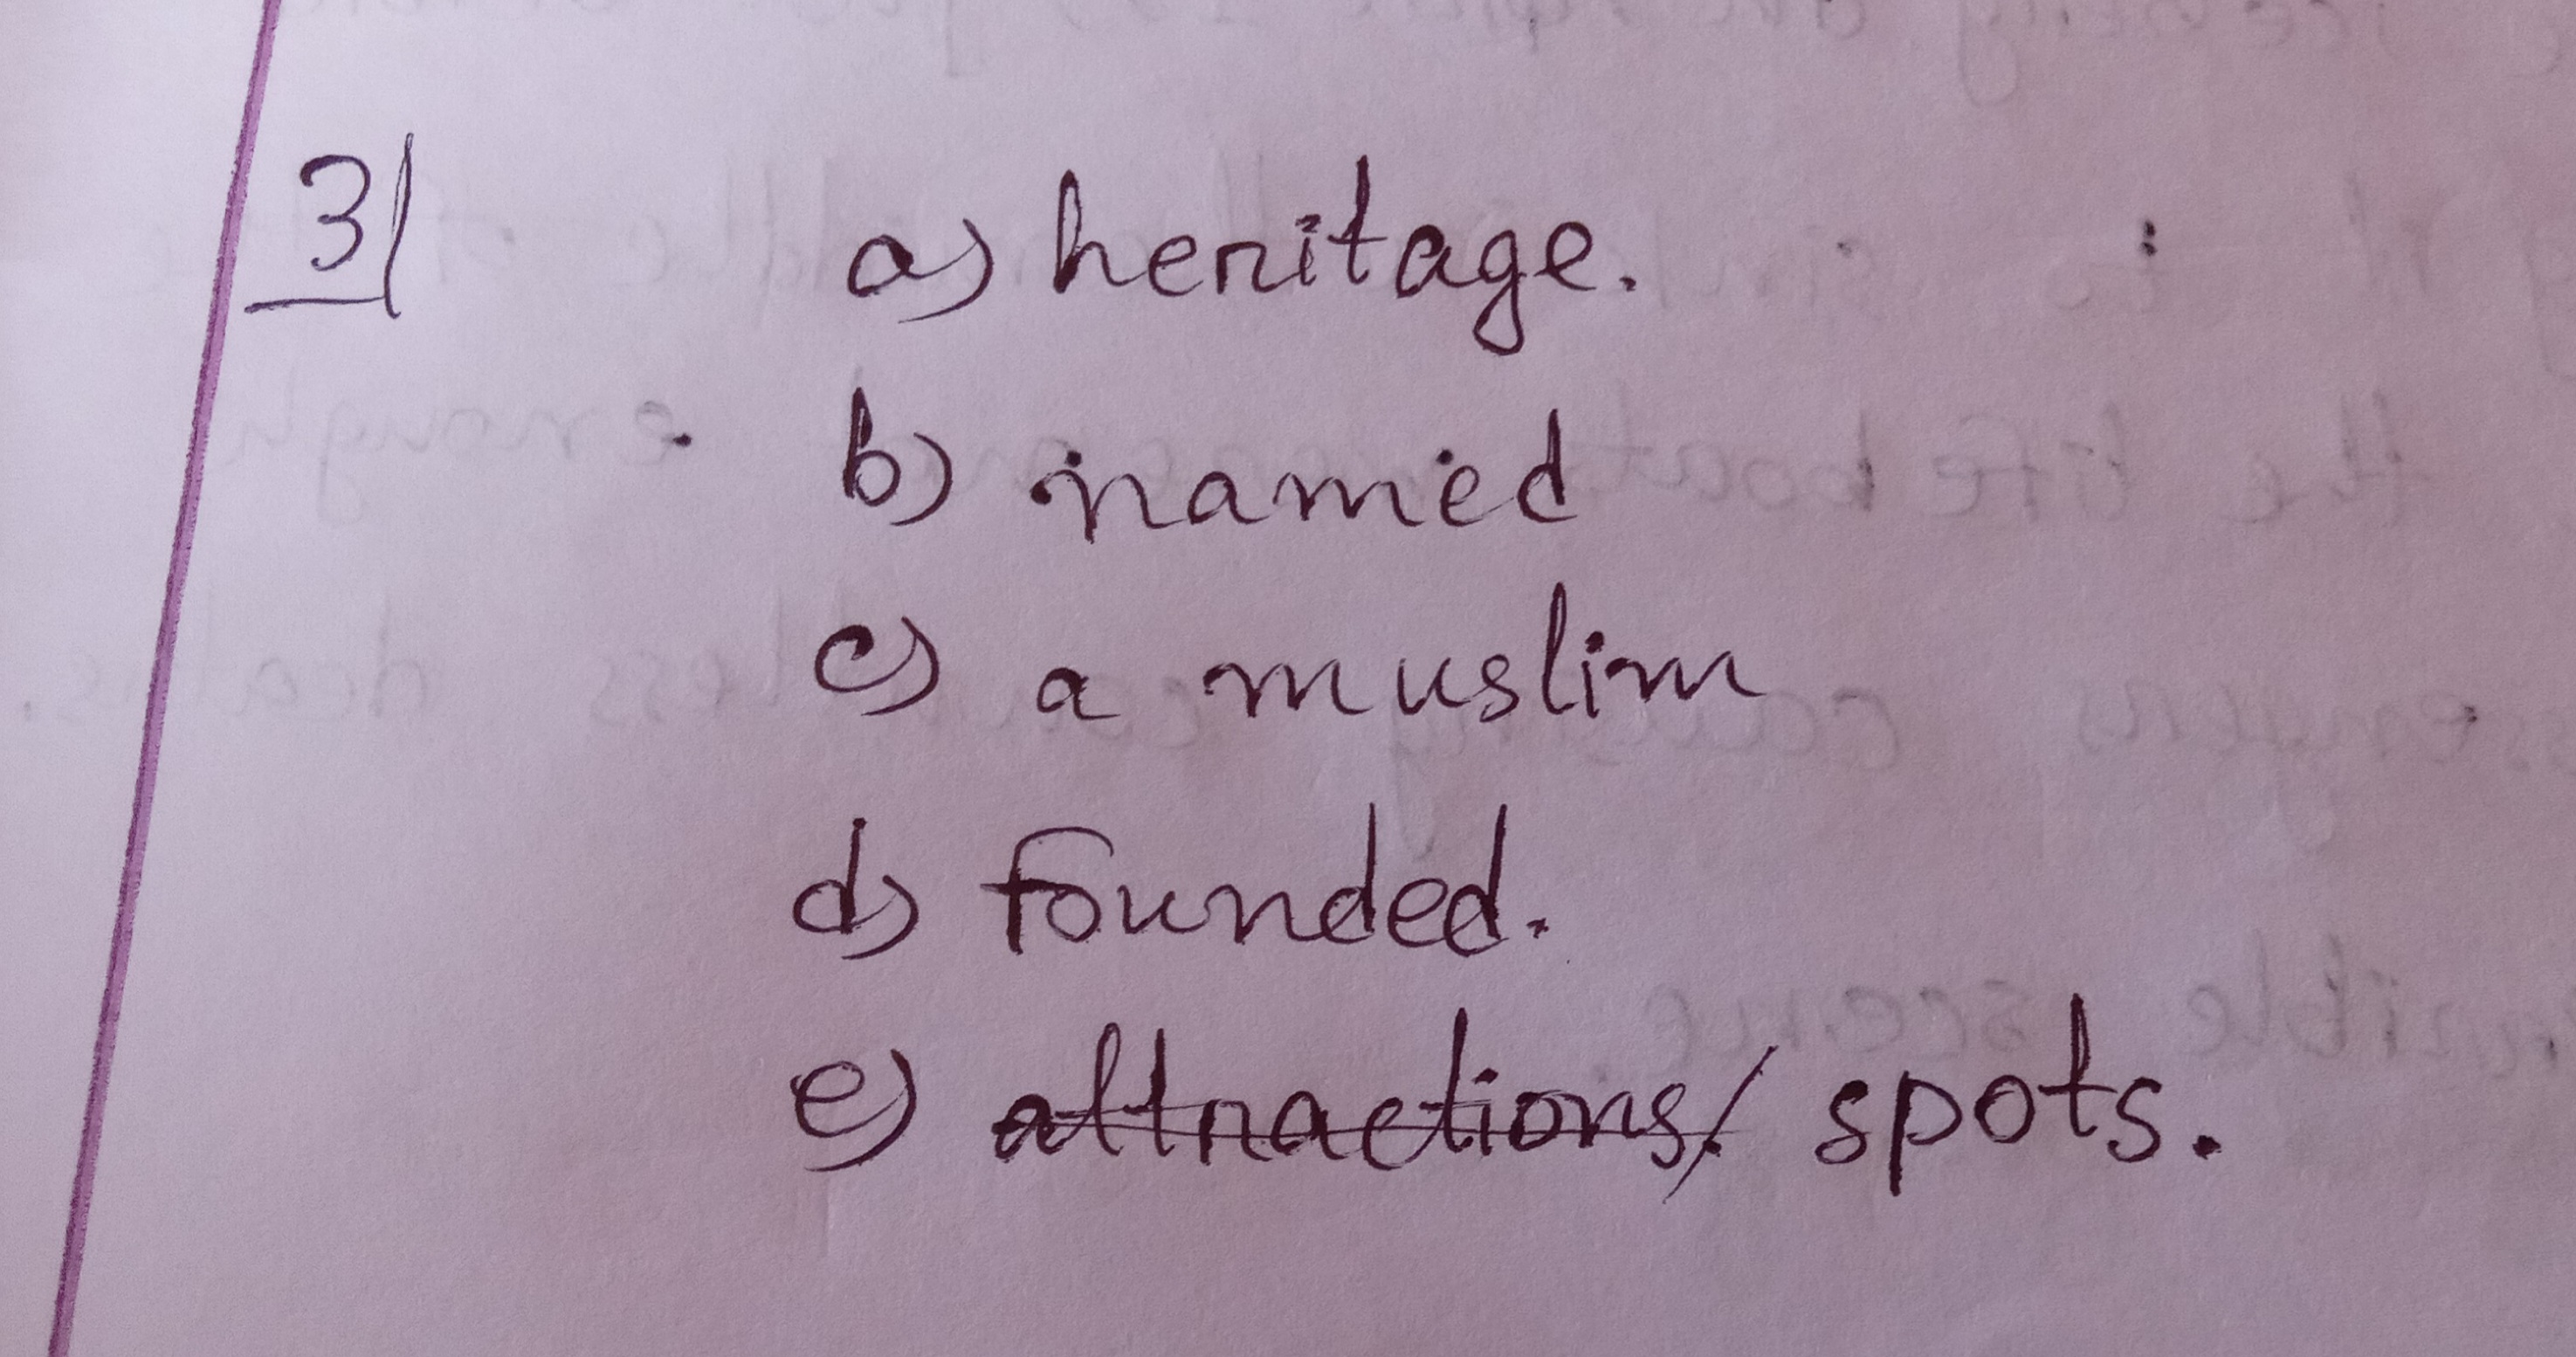 3|
a) heritage.
b) named
c) a muslim
d) founded.
e) attractions/ spots.